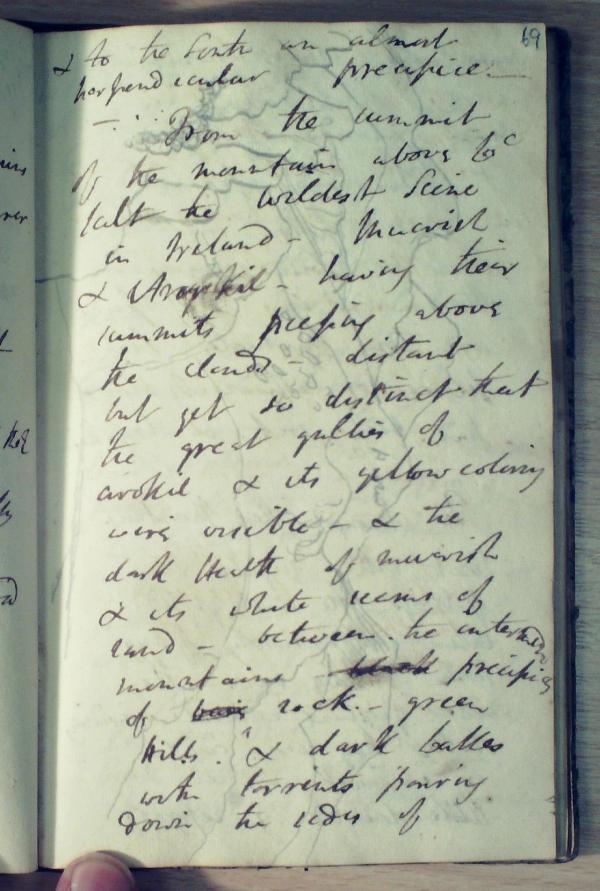 69
& to the South an almost
perpendicular precipice. —
— From the summit
of the mountain above Loc
salt the wildest Scene
in Ireland - Muavish
& Arokil - having their
summits peeping above
the clouds - distant
but yet so distinct that
the great gullies of
arokil & its yellow colouring
were visible - & the
dark Heath of muavish
& its white seams of
sand - between the intermediate
mountains black precipices
of bare rock. - green
Hills. & dark lakes
with torrents pouring
down the sides of